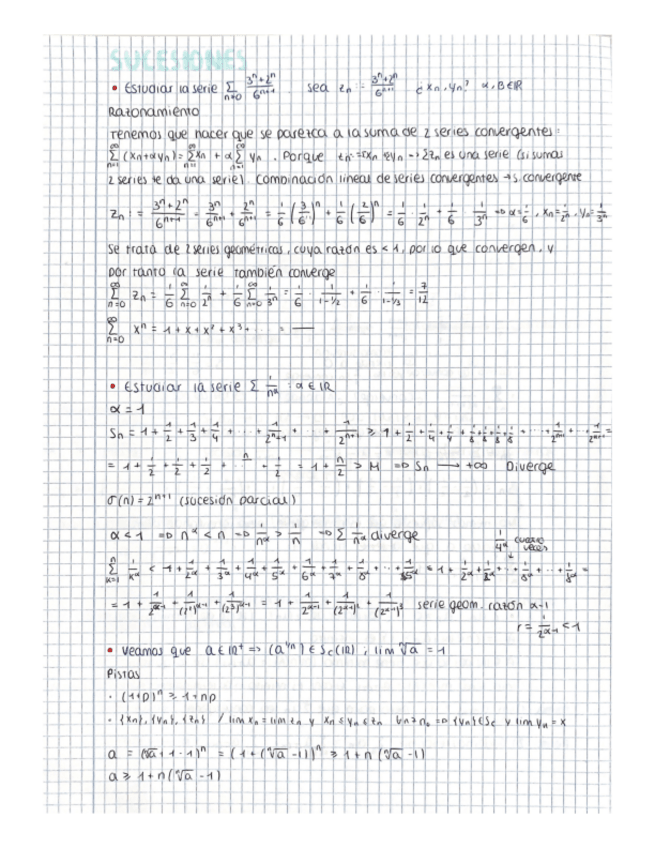 SUCESIONES
• Estudiar la serie ∑_{n=0} (3^n+2^n)/6^{n+1} . sea z_n := (3^n+2^n)/6^{n+1} ¿x_n, y_n? α, β∈ℝ
Razonamiento
Tenemos que hacer que se parezca a la suma de 2 series convergentes:
∑_{n=1}^∞ (x_n+αy_n) = ∑_{n=1}^∞ x_n + α∑_{n=1}^∞ y_n . Porque z_n := αx_n + y_n → ∑z_n es una serie (si sumas
2 series te da una serie). Combinación lineal de series convergentes → s. convergente
z_n := (3^n+2^n)/6^{n+1} = 3^n/6^{n+1} + 2^n/6^{n+1} = 1/6 (3/6)^n + 1/6 (2/6)^n = 1/6 · 1/2^n + 1/6 · 1/3^n ⇒ α = 1/6, x_n = 1/2^n, y_n = 1/3^n
Se trata de 2 series geométricas, cuya razón es < 1, por lo que convergen, y
por tanto la serie también converge
∑_{n=0}^∞ z_n = 1/6 ∑_{n=0}^∞ 1/2^n + 1/6 ∑_{n=0}^∞ 1/3^n = 1/6 · 1/(1-1/2) + 1/6 · 1/(1-1/3) = 7/12
∑_{n=0}^∞ x^n = 1 + x + x² + x³ + ··· = —
• Estudiar la serie ∑ 1/n^α : α∈ℝ
α = 1
S_n = 1 + 1/2 + 1/3 + 1/4 + ··· + 1/(2^n+1) + ··· + 1/2^{n+1} ≥ 1 + 1/2 + 1/4 + 1/4 + 1/8 + 1/8 + 1/8 + 1/8 + ··· + 1/2^{n+1} + ·· + 1/2^{n+1} =
= 1 + 1/2 + 1/2 + 1/2 + ··n·· + 1/2 = 1 + n/2 > M ⇒ S_n → +∞ Diverge
σ(n) = 2^{n+1} (sucesión parcial)
α < 1 ⇒ n^α < n ⇒ 1/n^α > 1/n ⇒ ∑ 1/n^α diverge
1/4^α cuatro veces
∑_{k=1}^n 1/k^α < 1 + 1/2^α + 1/3^α + 1/4^α + 1/5^α + 1/6^α + 1/7^α + 1/8^α + ··· + 1/15^α ≤ 1 + 1/2^α + 1/2^α + ·· + 1/8^α + ·· + 1/8^α =
= 1 + 1/2^{α-1} + 1/(2²)^{α-1} + 1/(2³)^{α-1} = 1 + 1/2^{α-1} + 1/(2^{α-1})² + 1/(2^{α-1})³ serie geom. razón α-1
r = 1/2^{α-1} < 1
• Veamos que a∈ℝ⁺ ⇒ (a^{1/n}) ∈ S_c(ℝ) ; lim ⁿ√a = 1
Pistas
· (1+p)^n ≥ 1 + np
· {x_n}, {y_n}, {z_n} / lim x_n = lim z_n y x_n ≤ y_n ≤ z_n ∀n ≥ n₀ ⇒ {y_n}∈S_c y lim y_n = x
a = (ⁿ√a + 1 - 1)^n = (1 + (ⁿ√a - 1))^n ≥ 1 + n (ⁿ√a - 1)
a ≥ 1 + n(ⁿ√a - 1)